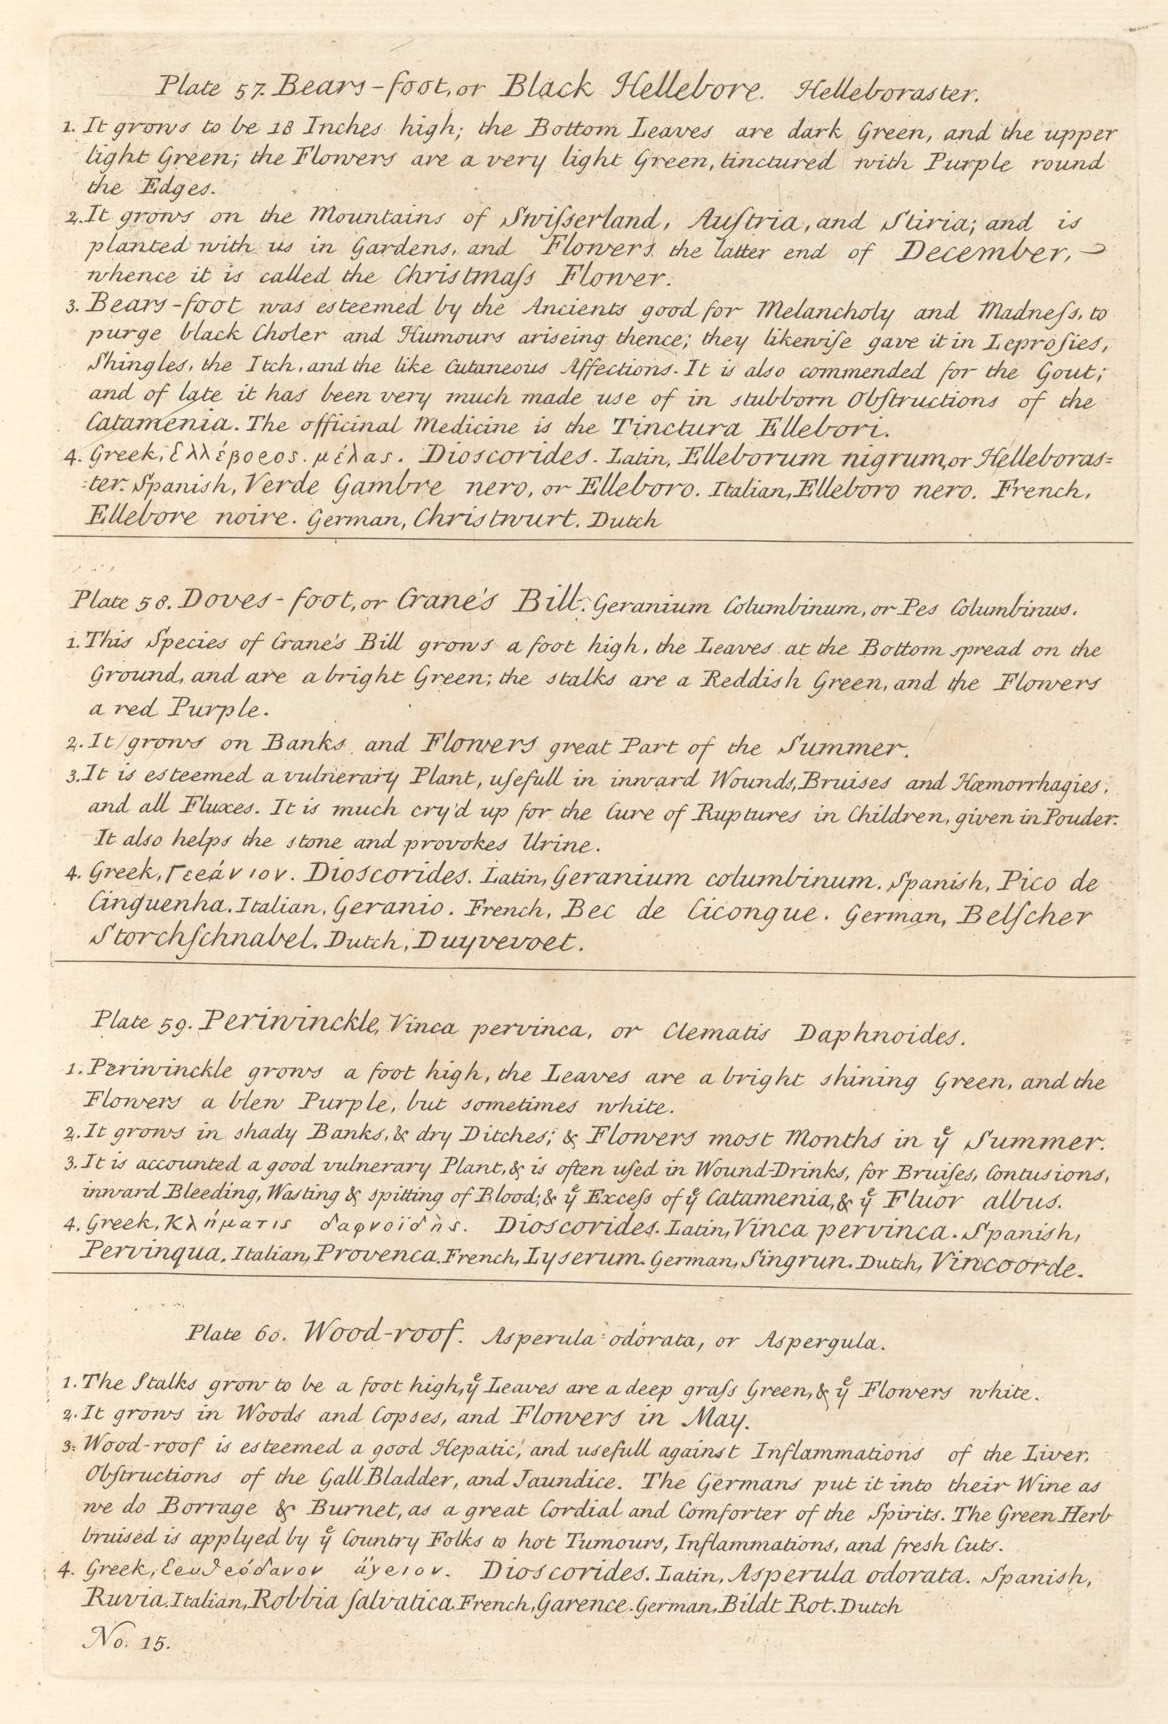 Plate 57. Bears-foot, or Black Hellebore. Helleboraster.
1. It grows to be 18 Inches high; the Bottom Leaves are dark Green, and the upper
light Green; the Flowers are a very light Green, tinctured with Purple round
the Edges.
2. It grows on the Mountains of Swiſserland, Auſtria, and Stiria; and is
planted with us in Gardens, and Flowers the latter end of December,
whence it is called the Christmaſs Flower.
3. Bears-foot was esteemed by the Ancients good for Melancholy and Madneſs, to
purge black Choler and Humours ariseing thence; they likewiſe gave it in Leproſies,
Shingles, the Itch, and the like Cutaneous Affections. It is also commended for the Gout;
and of late it has been very much made use of in stubborn Obſtructions of the
Catamenia. The officinal Medicine is the Tinctura Ellebori.
4. Greek, ἑλλέβορος μέλας. Dioscorides. Latin, Elleborum nigrum, or Helleboras=
=ter. Spanish, Verde Gambre nero, or Elleboro. Italian, Elleboro nero. French,
Ellebore noire. German, Christwurt. Dutch
Plate 58. Doves-foot, or Crane's Bill. Geranium Columbinum, or Pes Columbinus.
1. This Species of Crane's Bill grows a foot high, the Leaves at the Bottom spread on the
Ground, and are a bright Green; the stalks are a Reddish Green, and the Flowers
a red Purple.
2. It grows on Banks and Flowers great Part of the Summer.
3. It is esteemed a vulnerary Plant, uſefull in inward Wounds, Bruises and Hæmorrhagies,
and all Fluxes. It is much cry'd up for the Cure of Ruptures in Children, given in Pouder.
It also helps the stone and provokes Urine.
4. Greek, Γεράνιον. Dioscorides. Latin, Geranium columbinum. Spanish, Pico de
Cinguenha. Italian, Geranio. French, Bec de Cicongue. German, Belſcher
Storchſchnabel. Dutch, Duyvevoet.
Plate 59. Periwinckle, Vinca pervinca, or Clematis Daphnoides.
1. Periwinckle grows a foot high, the Leaves are a bright shining Green, and the
Flowers a blew Purple, but sometimes white.
2. It grows in shady Banks, & dry Ditches; & Flowers most Months in yͤ Summer.
3. It is accounted a good vulnerary Plant, & is often uſed in Wound-Drinks, for Bruiſes, Contusions,
inward Bleeding, Wasting & spitting of Blood; & yͤ Exceſs of yͤ Catamenia, & yͤ Fluor albus.
4. Greek, Κλήματις δαφνοϊδής. Dioscorides. Latin, Vinca pervinca. Spanish,
Pervinqua. Italian, Provenca. French, Lyserum. German, Singrun. Dutch, Vincoorde.
Plate 60. Wood-roof. Asperula odorata, or Aspergula.
1. The Stalks grow to be a foot high, yͤ Leaves are a deep graſs Green, & yͤ Flowers white.
2. It grows in Woods and Copses, and Flowers in May.
3. Wood-roof is esteemed a good Hepatic, and usefull against Inflammations of the Liver,
Obſtructions of the Gall Bladder, and Jaundice. The Germans put it into their Wine as
we do Borrage & Burnet, as a great Cordial and Comforter of the Spirits. The Green Herb
bruised is applyed by yͤ Country Folks to hot Tumours, Inflammations, and fresh Cuts.
4. Greek, ἐρυθρόδανον ἄγριον. Dioscorides. Latin, Asperula odorata. Spanish,
Ruvia. Italian, Robbia ſalvatica. French, Garence. German, Bildt Rot. Dutch
No. 15.